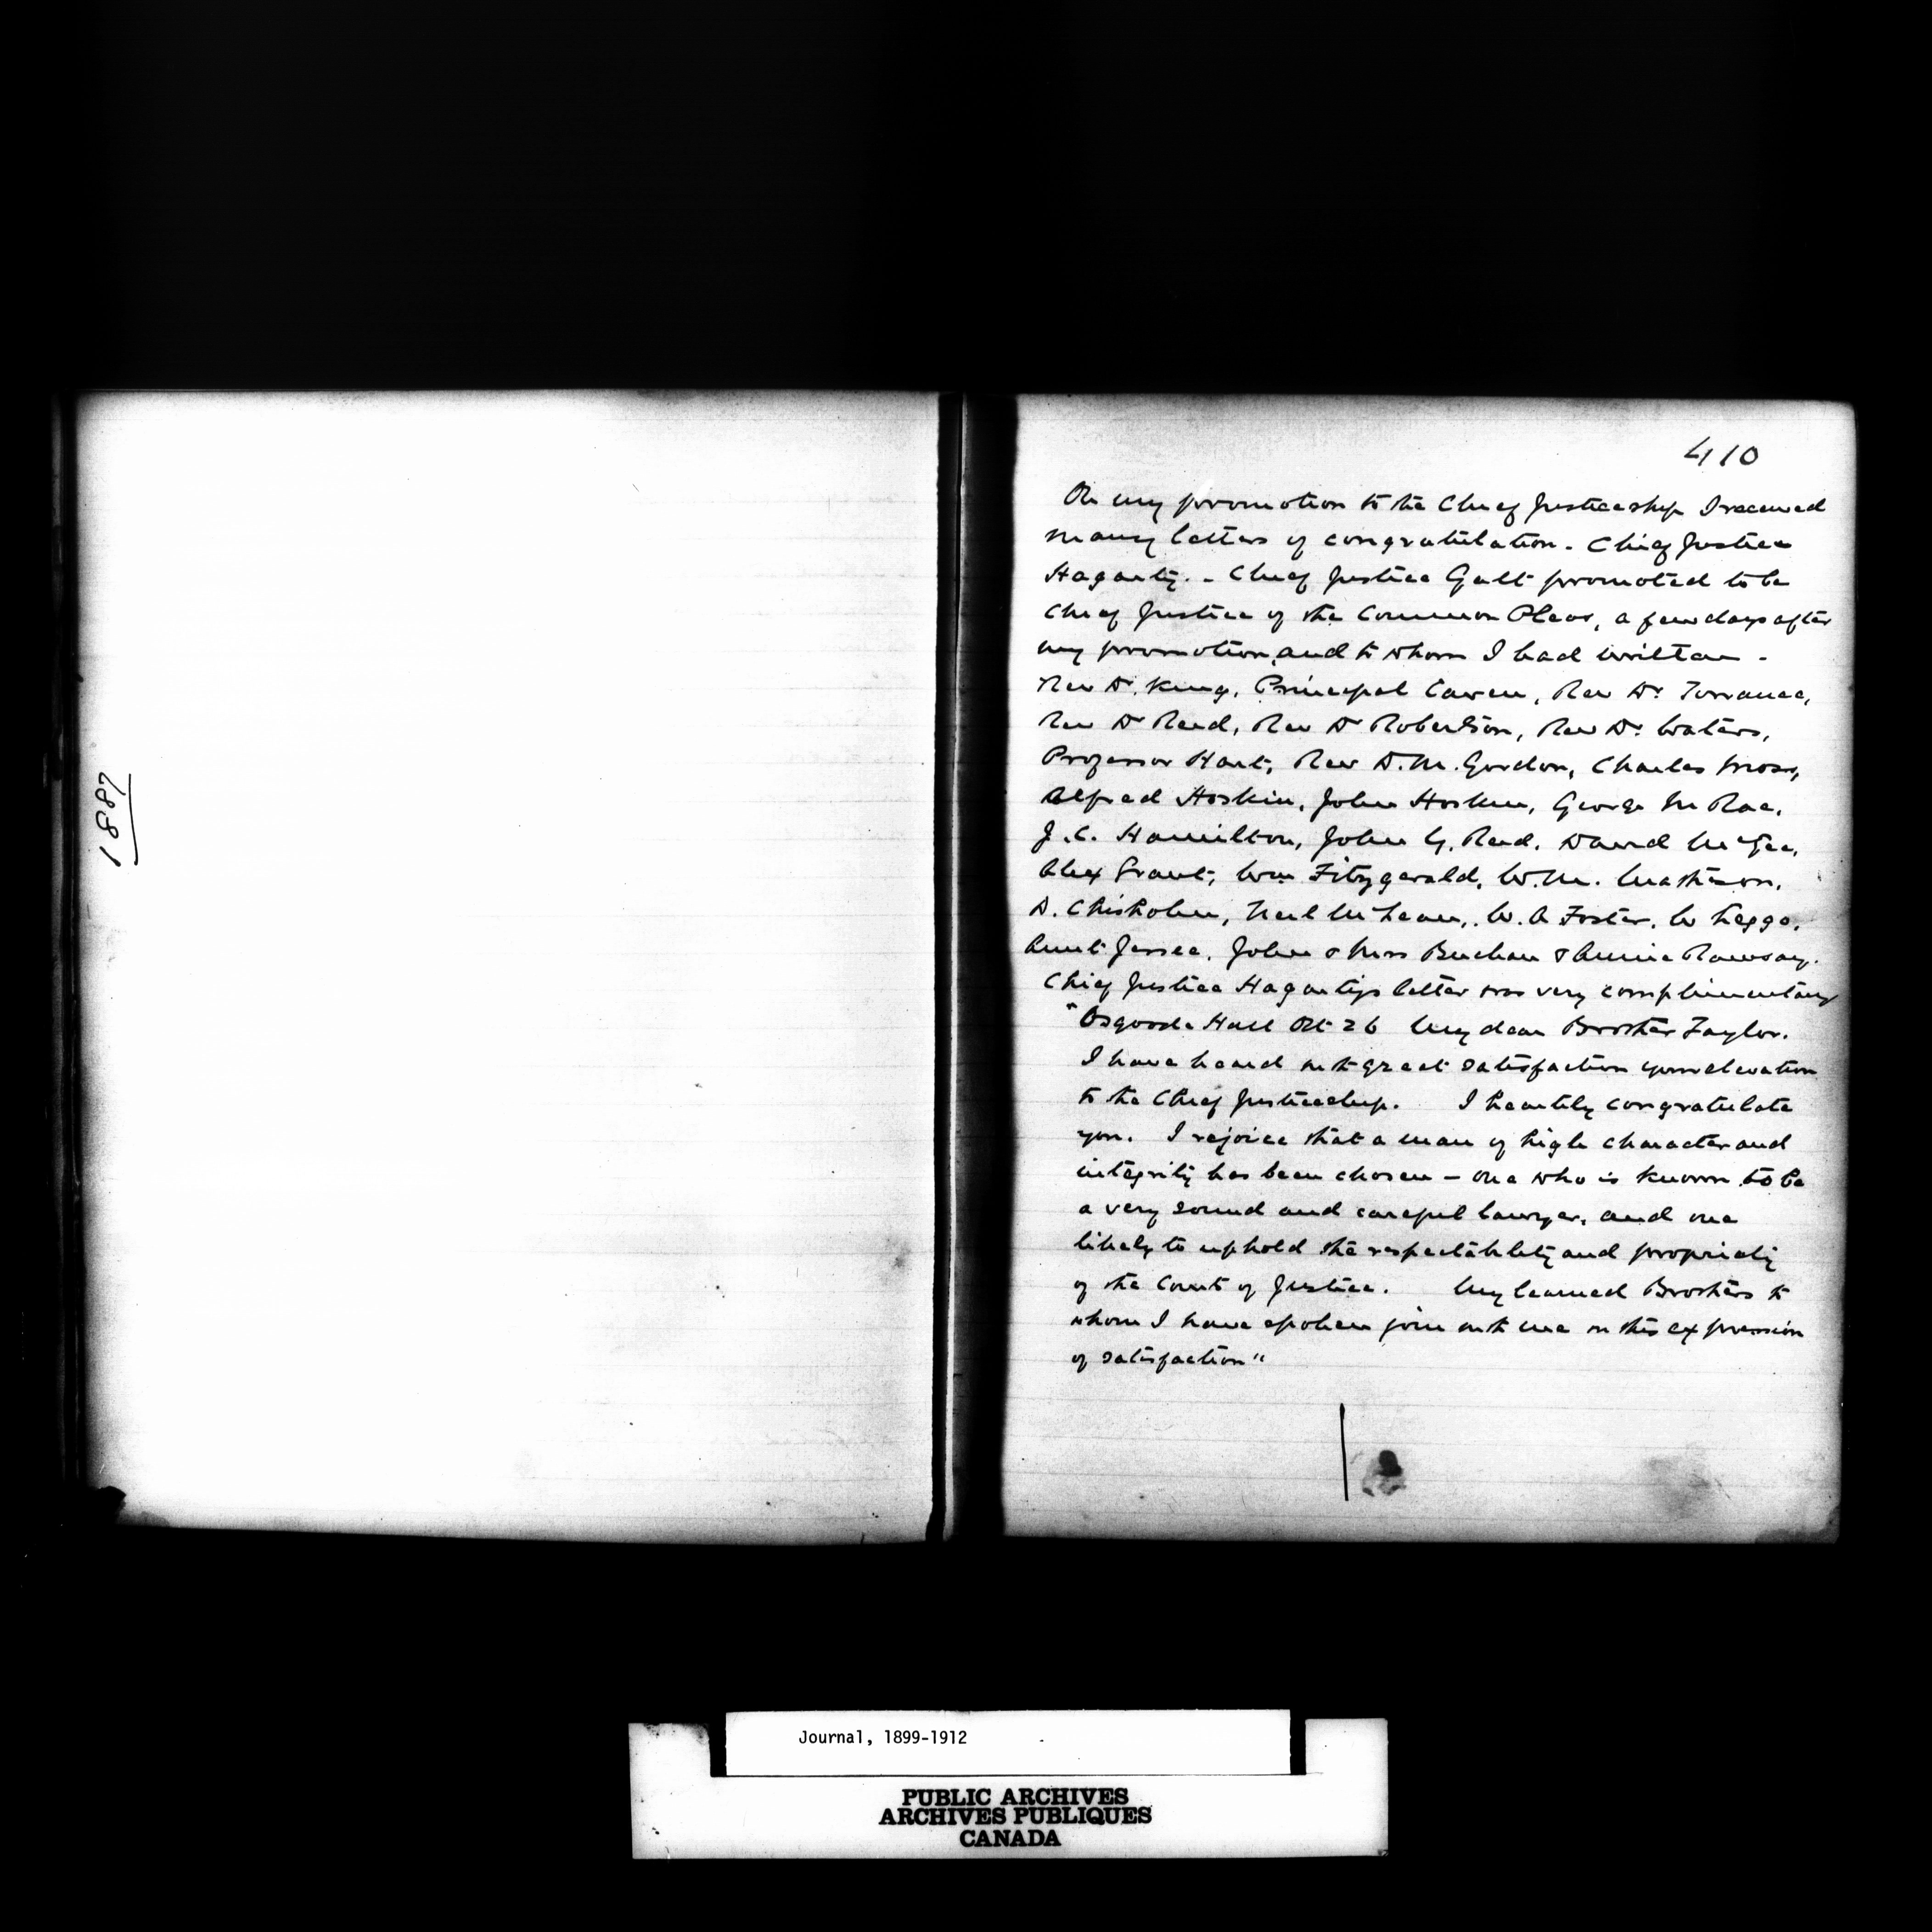 1887
410
On my promotion to the Chief Justiceship I received
many letters of congratulation - Chief Justice
Hagarty. - Chief Justice Galt promoted to be
Chief Justice of the Common Pleas, a few days after
my promotion, and to whom I had written -
Rev Dr. King, Principal Caven, Rev Dr Torrance,
Rev Dr Reid, Rev Dr Robertson, Rev Dr. Waters,
Professor Hart, Rev D. M. Gordon, Charles Moss,
Alfred Hoskin, John Hoskin, George M Rae,
J. C. Hamilton, John Y. Reid, David McGee,
Alex Grant, Wm Fitzgerald, W. M. Matheson,
D. Chisholm, Neil McLean, W. A Foster, W Leggo,
Aunt Jessee, John & Mrs Buchan & Annie Ramsay.
Chief Justice Hagartys letter was very complimentary
"Osgoode Hall Oct 26 My dear Brother Taylor.
I have heard with great satisfaction your elevation
to the Chief Justiceship. I heartily congratulate
you. I rejoice that a man of high character and
integrity has been chosen - one who is known to be
a very sound and careful lawyer, and one
likely to uphold the respectability and propriety
of the Court of Justice. My learned Brothers to
whom I have spoken join with me in this expression
of satisfaction"
Journal, 1899-1912
PUBLIC ARCHIVES
ARCHIVES PUBLIQUES
CANADA